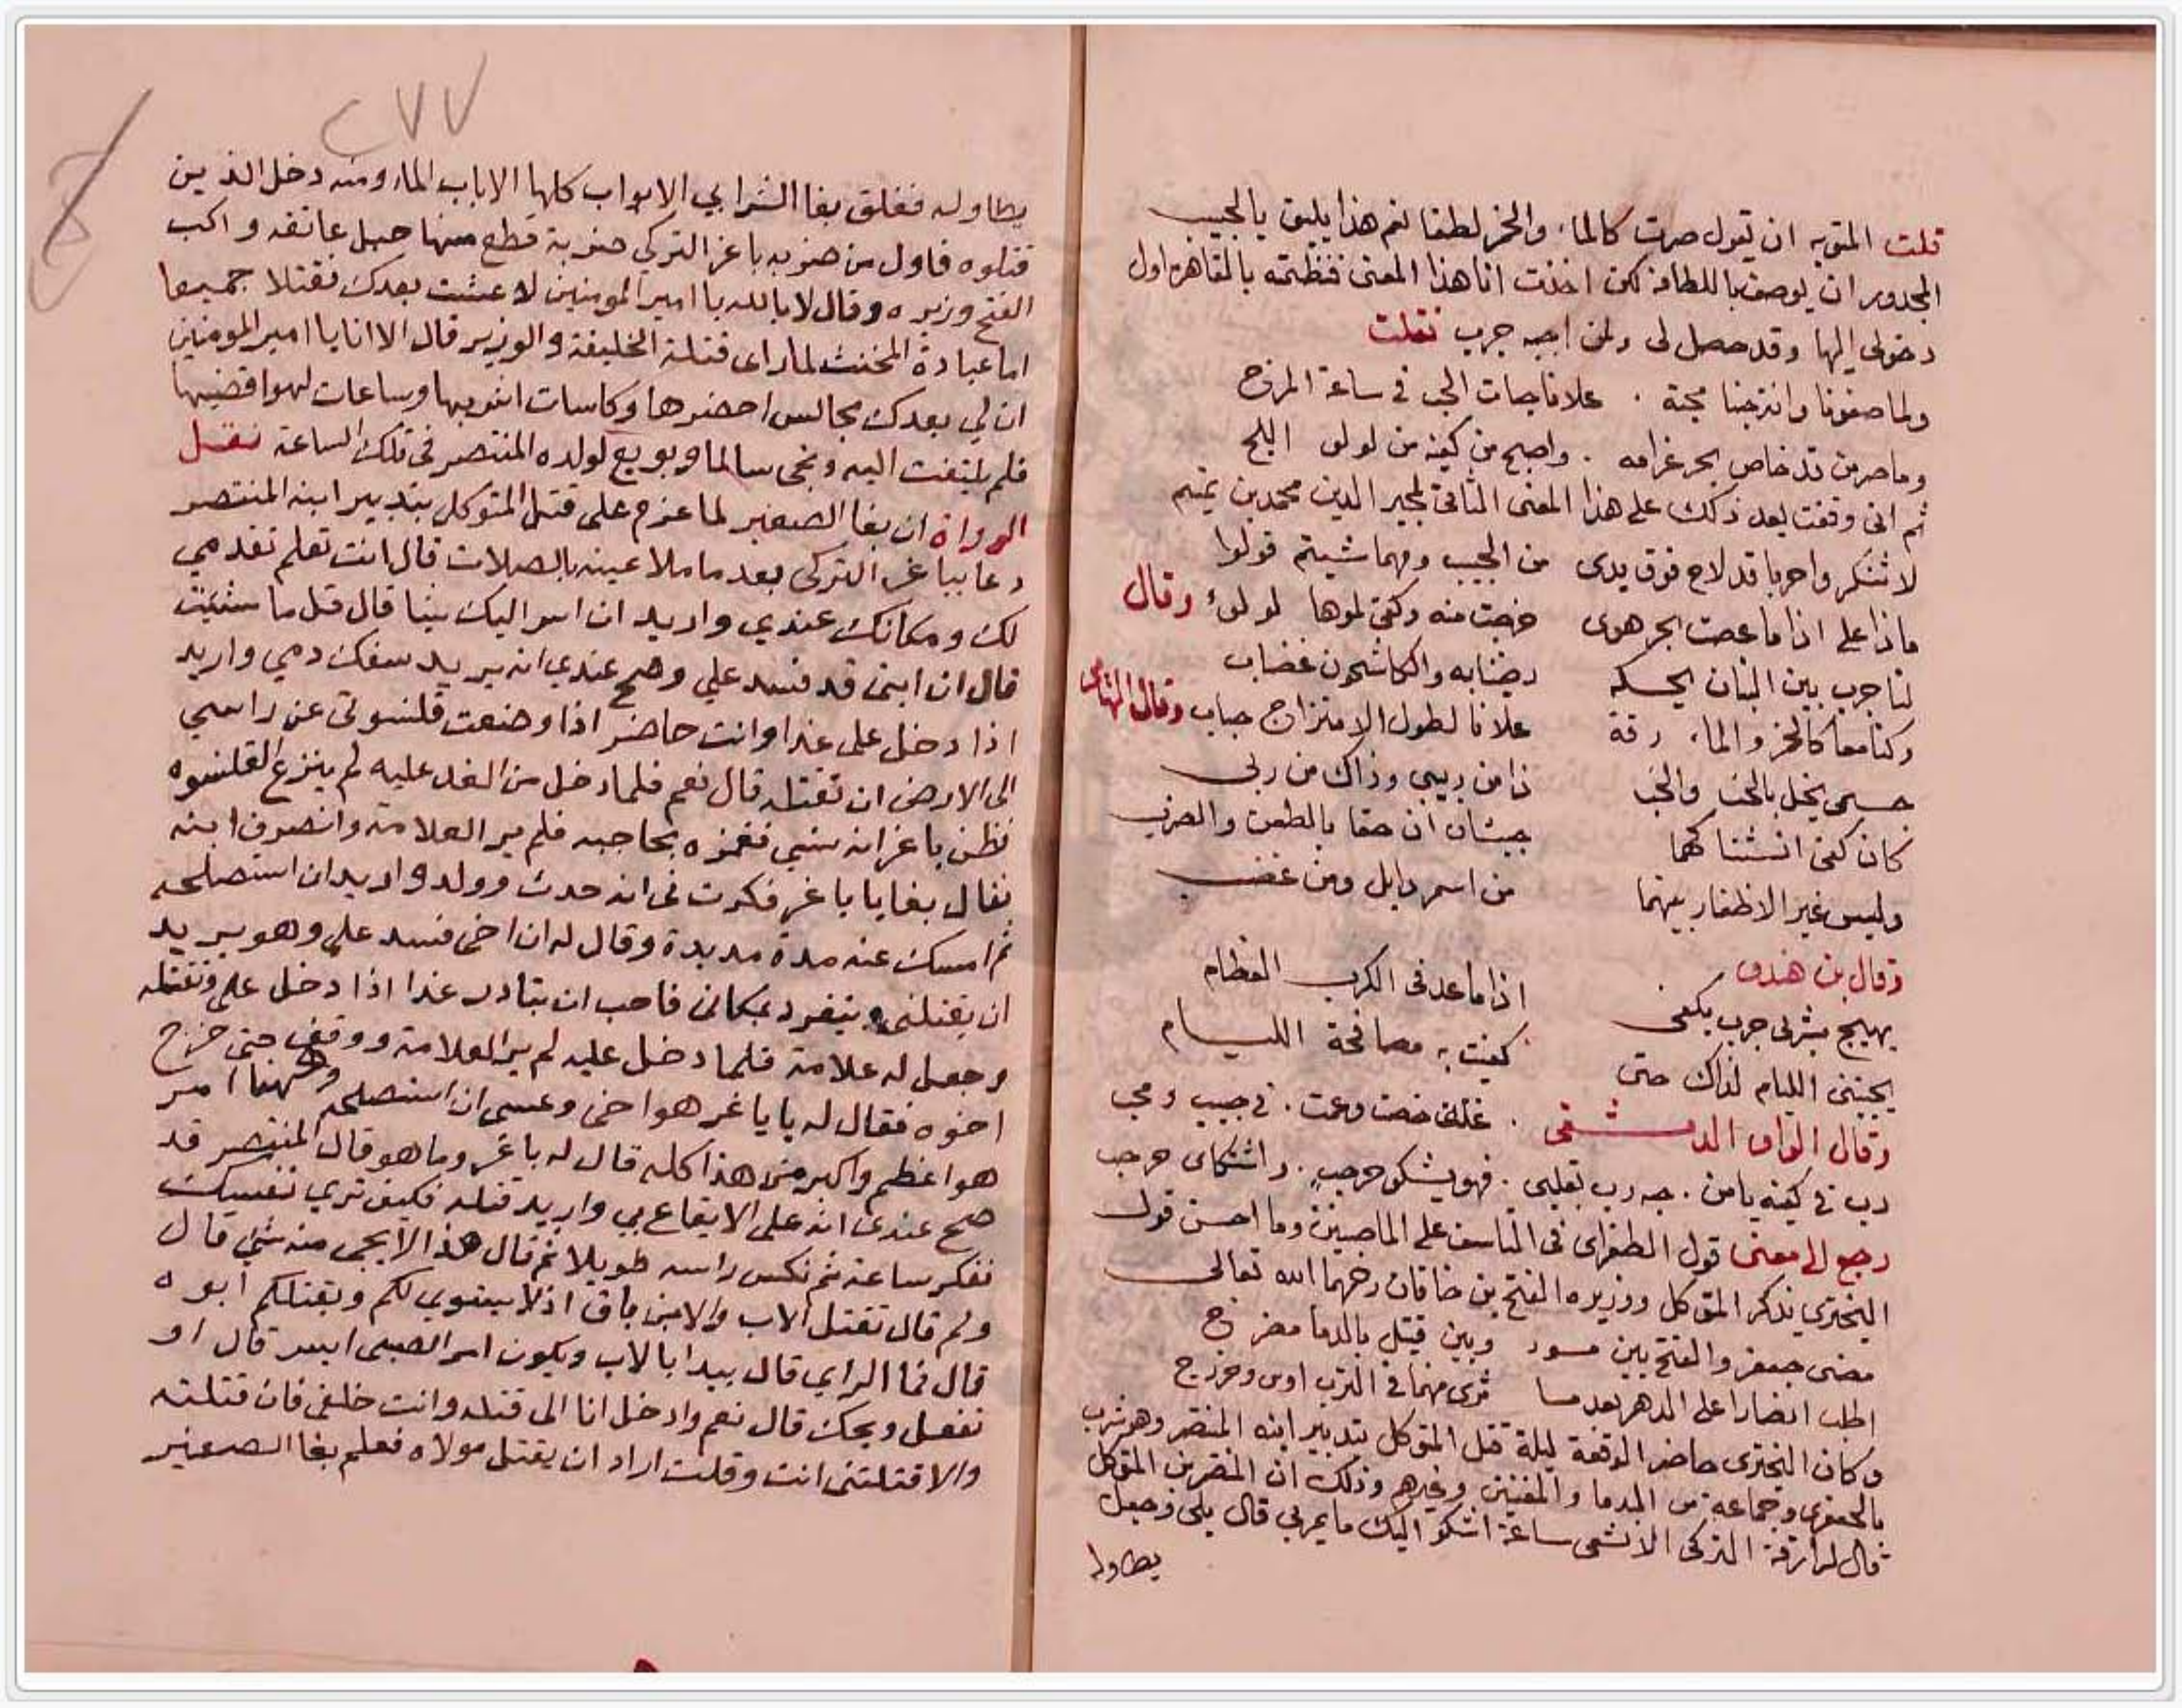 قلت المتوجه ان تقول صرت كالماء والخمر لطفا نعم هذا يليق بالحبيب
المجدور ان يوصف باللطافة لكن اخذت انا هذا المعنى فنظمته بالقاهرة اول
دخولى اليها وقد حصل لى ولمن احبه جرب فقلت
ولما صفونا وامتزجنا محبة . علانا حباب الحب فى ساعة المزج
وما صر من قد خاض بحر غرامه . واصبح من كفه من لولو اللج
ثم انى وقفت بعد ذلك على هذا المعنى الثانى لمجير الدين محمد بن تميم
لا تنكروا حربا قد لاح فوق يدى من الحبيب ومهما شيتم قولوا
ماذا على اذا ما غصت بحر هوى خرجت منه وكفى ملوها لولوء وقال
لنا جرب بين البنان نحكه رضينا به والكاشحون غضاب
وكنا معا كالخمر والماء رقة علانا لطول الامتزاج حباب وقال
جسمى نحل بالحب والحب ذا من ربيبى وذاك من ربى
كان كفى انشتنا كهما جيشان ان حقا بالطعن والضرب
وليس غير الاظفار بينهما من اسمر ذابل ومن عضب
وقال بن هندو
يهيج بشربى جرب بكفى اذا ما عد فى الكرب العظام
يجنبنى الليام لذاك حتى كفيت به مصافحة الليام
وقال الواوا الدمشقى . علة خصت وعمت . فى حبيب ومحب
دب فى كفيه يا من . حبه دب بقلبى . فهو يشكو حر حب . واشتكاى حر حب
رجع الى معنى قول الطغراى فى التاسف على الماضين وما احسن قول
البحترى يذكر المتوكل ووزيره الفتح بن خاقان رحمهما الله تعالى
مضى جعفر والفتح بين موسد وبين قتيل بالدما مضرج
اطلب انصارا على الدهر بعدما ثوى منهما فى الترب اوس وخزرج
وكان البحترى حاضر الوقعة ليلة قتل المتوكل بتدبير ابنه المنتصر وهو يشرب
بالجعفرى وجماعة من الندما والمغنين وغيرهم وذلك ان المنتصر بن المتوكل
قال لزرافة التركى الا تمشى ساعة اشكو اليك ما يمر بى قال بلى وجعل
يطاوله
٢٧٧
يطاوله فغلق بغا الشرابي الابواب كلها الا باب الماء ومنه دخل الذين
قتلوه فاول من ضربه باغر التركى ضربة قطع منها حبل عاتقه واكب
الفتح وزيره وقال لا بالله يا امير المومنين لا عشت بعدك فقتلا جميعا
اما عبادة المخنث لما راى قتلة الخليفة والوزير قال الا انا يا امير المومنين
ان لي بعدك مجالس احضرها وكاسات اشربها وساعات لهو اقضيها
فلم يلتفت اليه ونجى سالما وبويع لولده المنتصر فى تلك الساعة نقل
الرواة ان بغا الصغير لما عزم على قتل المتوكل بتدبير ابنه المنتصر
دعا بباغر التركى بعد ما ملا عينه بالصلات قال انت تعلم تقدمي
لك ومكانك عندي واريد ان اسر اليك شيا قال قل ما شئت
قال ان ابنى قد فسد علي وصح عندي انه يريد سفك دمي واريد
اذا دخل على غدا وانت حاضر اذا وضعت قلنسوتى عن راسي
الى الارض ان تقتله قال نعم فلما دخل من الغد عليه لم ينزع القلنسوه
فظن باغر انه نسي فغمزه بحاجبه فلم ير العلامة وانصرف ابنه
فقال بغا يا باغر فكرت فى انه حدث وولد واريد ان استصلحه
ثم امسك عنه مدة مديدة وقال له ان اخى فسد على وهو يريد
ان يقتلنى وينفرد بمكانى فاحب ان تبادر غدا اذا دخل على وتقتله
وجعل له علامة فلما دخل عليه لم ير العلامة ووقف حتى خرج
اخوه فقال له يا باغر هو اخى وعسى ان استصلحه وههنا امر
هو اعظم واكبر من هذا كله قال له باغر وما هو قال المنتصر قد
صح عندى انه على الايقاع بي واريد قتله فكيف تري نفسك
ففكر ساعة ثم نكس راسه طويلا ثم قال هذا لا يجى منه شي قال
ولم قال تقتل الاب والابن باق اذ لا يستوي لكم ويقتلكم ابوه
قال فما الراي قال يبدا بالاب ويكون امر الصبى ايسر قال او
تفعل ويحك قال نعم وادخل انا الى قتله وانت خلفى فان قتلته
والا قتلتنى انت وقلت اراد ان يقتل مولاه فعلم بغا الصغير